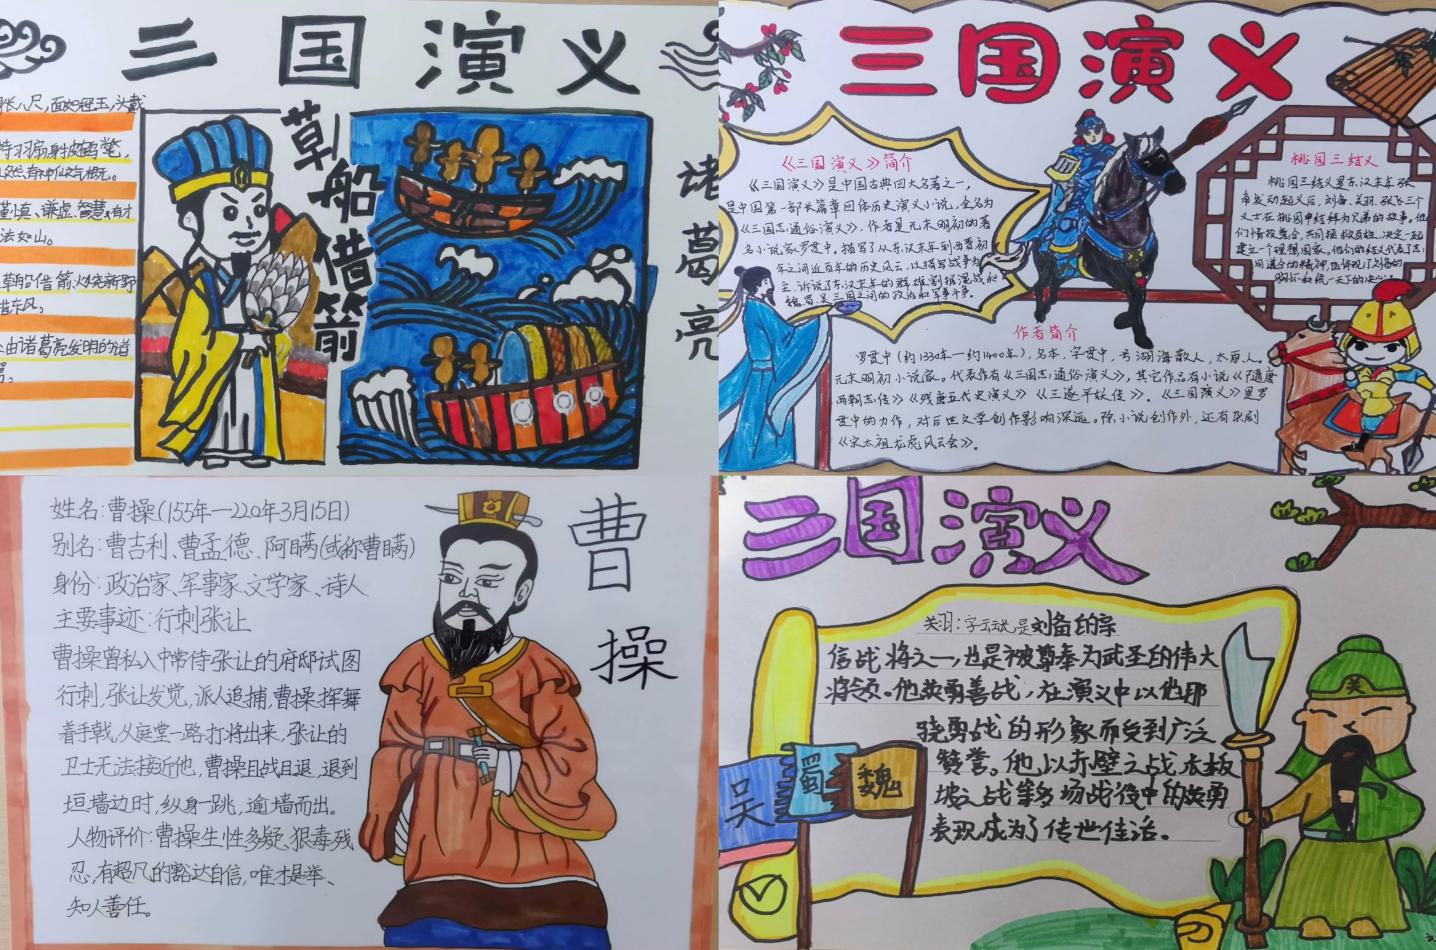 三国演义
草船借箭
诸葛亮
长八尺,面如冠玉,头戴
谨慎、谦虚、智慧,有才
法如山。
草船借箭、火烧新野
借东风。
由诸葛亮发明的诸
三国演义
《三国演义》简介
《三国演义》是中国古典四大名著之一,
是中国第一部长篇章回体历史演义小说,全名为
《三国志通俗演义》,作者是元末明初的著
名小说家罗贯中。描写了从东汉末年到西晋初
年之间近百年的历史风云,以描写战争为
主,诉说了东汉末年的群雄割据混战和
魏、蜀、吴三国之间的政治和军事斗争。
桃园三结义
桃园三结义是东汉末年,张
角发动起义后,刘备、关羽、张飞三个
义士在桃园中结拜为兄弟的故事。他
们情投意合,共同
建立一个理想国家。他们的结义代表了志
同道合的精神,也体现了刘备的
作者简介
罗贯中(约1330年—约1400年),名本,字贯中,号湖海散人,太原人。
元末明初小说家。代表作有《三国志通俗演义》,其它作品有小说《隋唐
两朝志传》《残唐五代史演义》《三遂平妖传》。《三国演义》是罗
贯中的力作,对后世文学创作影响深远。除小说创作外,还有杂剧
《宋太祖龙虎风云会》。
曹操
姓名:曹操(155年—220年3月15日)
别名:曹吉利、曹孟德、阿瞒(或称曹瞒)
身份:政治家、军事家、文学家、诗人
主要事迹:行刺张让
曹操曾私入中常侍张让的府邸试图
行刺,张让发觉,派人追捕,曹操挥舞
着手戟,从庭堂一路打将出来,张让的
卫士无法接近他,曹操且战且退,退到
垣墙边时,纵身一跳,逾墙而出。
人物评价:曹操生性多疑、狠毒残
忍,有超凡的豁达自信,唯才是举、
知人善任。
三国演义
关羽:字云长是刘备的亲
信战将之一,也是被尊奉为武圣的伟大
将领。他英勇善战,在演义中以他那
骁勇战的形象而受到广泛
赞誉。他以赤壁之战,长板
坡之战等多场战役中的英勇
表现成为了传世佳话。
吴
蜀
魏
关